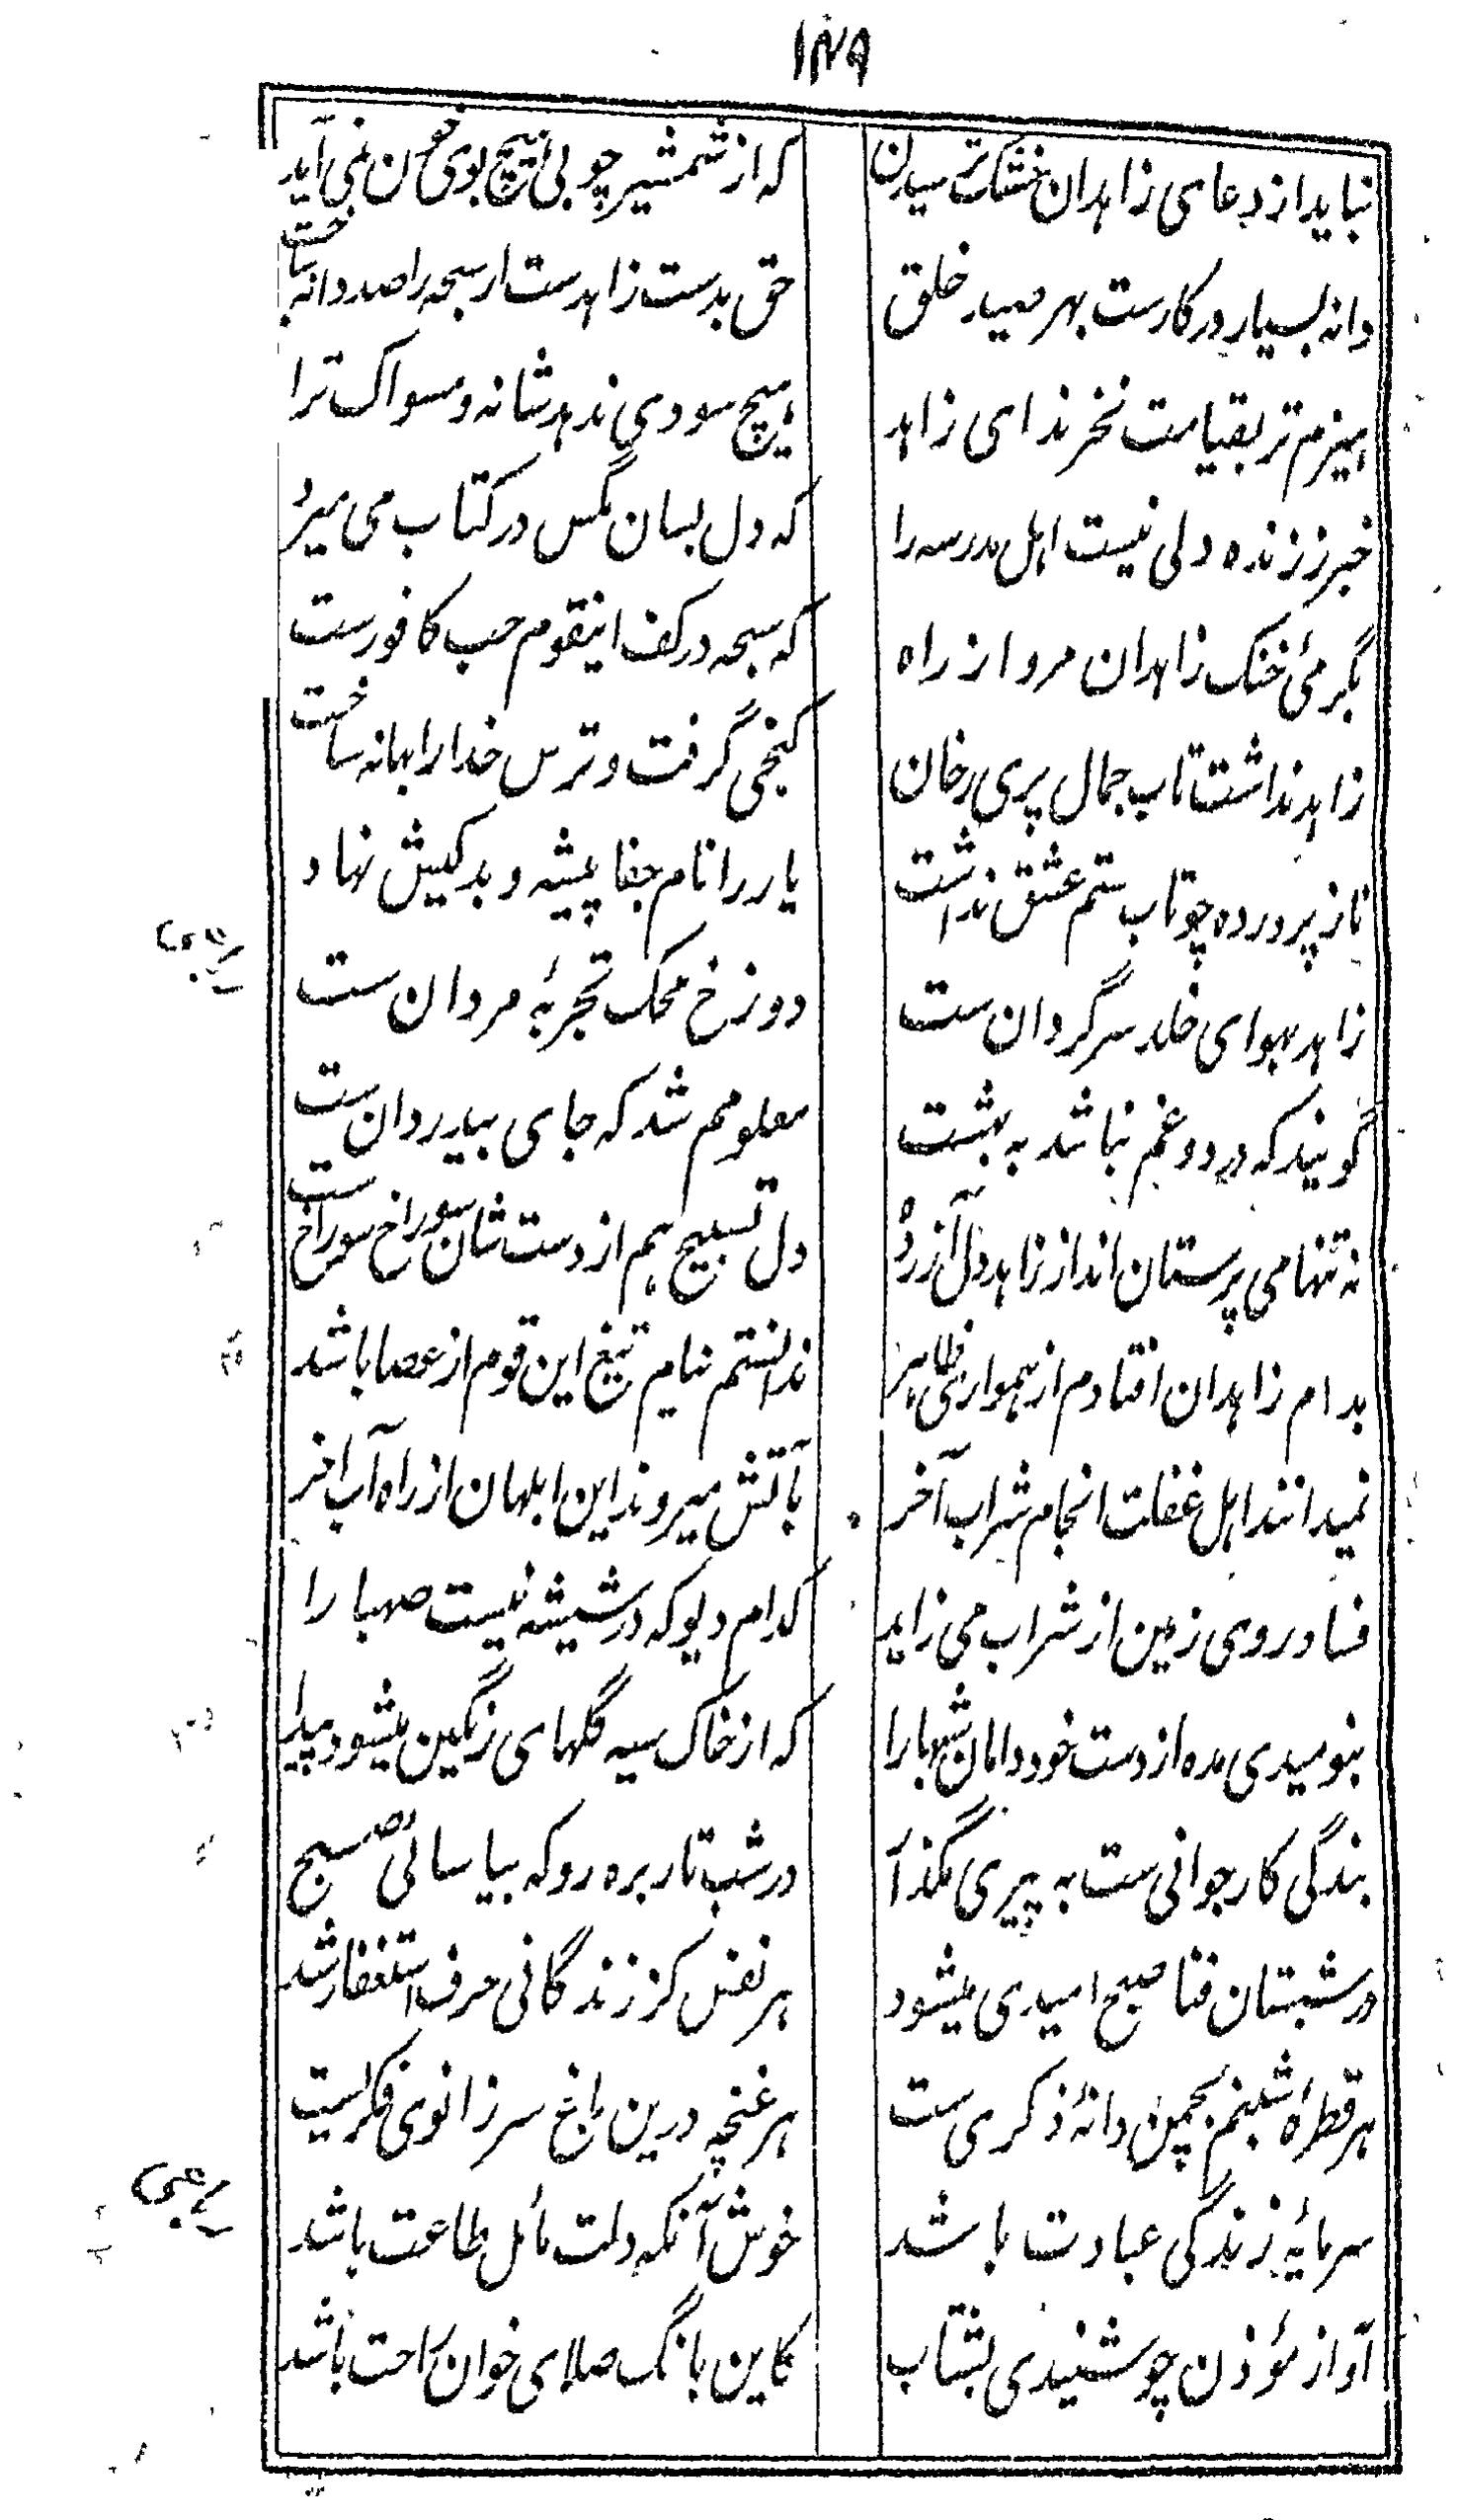 ۱۸۹
نباید از دعای زاهدان خشک ترسیدن که از شمشیر چوبی هیچ بوی خون نمی آید
دانه بسیار در کارست بهر صید خلق حق بدست زاهدست ار سبحه را صد دانه ساخت
هیزم تر بقیامت نخرند ای زاهد هیچ سودی ندهد شانه و مسواک ترا
خبر ز زنده دلی نیست اهل مدرسه را که دل بسان مگس در کتاب می میرد
بگرمی خنک زاهدان مرو از راه که سبحه در کف اینقوم حب کافورست
زاهد نداشت تاب جمال پری رخان کنجی گرفت و ترس خدا را بهانه ساخت
ناز پرورده چو تاب ستم عشق نداشت یار را نام جفا پیشه و بد کیش نهاد
رباعی
زاهد بهوای خلد سرگردان ست دوزخ محک تجربهٔ مردان ست
گویند که درد و غم نباشد به بهشت معلومم شد که جای بیدردان ست
نه تنها می پرستان اند از زاهد دل آزرده دل تسبیح هم از دست شان سوراخ سوراخ ست
بدام زاهدان افتادم از همواری ظاهر ندانستم نیام تیغ این قوم از عصا باشد
نمیدانند اهل غفلت انجام شراب آخر بآتش میروند این ابلهان از راه آب آخر
فساد روی زمین از شراب می زاید کدام دیو که در شیشه نیست صهبا را
بنومیدی مده از دست خود دامان شبها را که از خاک سیه گلهای رنگین میشود پیدا
بندگی کار جوانی ست به پیری مگذار در شب تار بره رو که بیاسائی صبح
در شبستان فنا صبح امیدی میشود هر نفس کز زندگانی صرف استغفار شد
هر قطرهٔ شبنم بچمن دانهٔ ذکری ست هر غنچه درین باغ سر زانوی فکریست
رباعی
سرمایهٔ زندگی عبادت باشد خوش آنکه دلت مائل طاعت باشد
آواز مؤذن چو شنیدی بشتاب کاین بانگ صلای خوان باشد